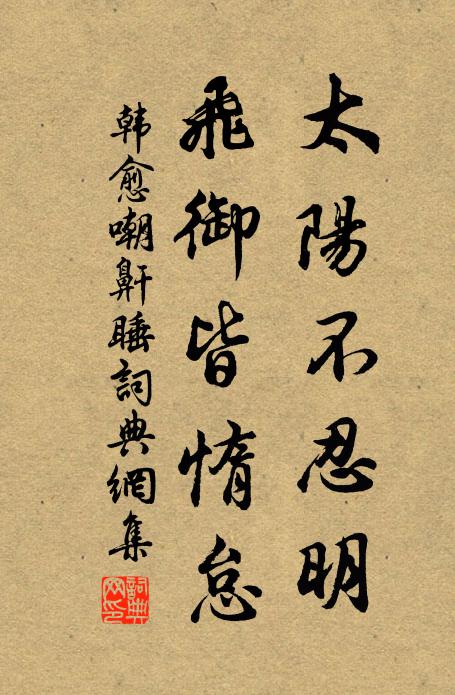 太陽不忍明
飛御皆惰怠
韓愈嘲鼾睡詞典網集
詞典網印